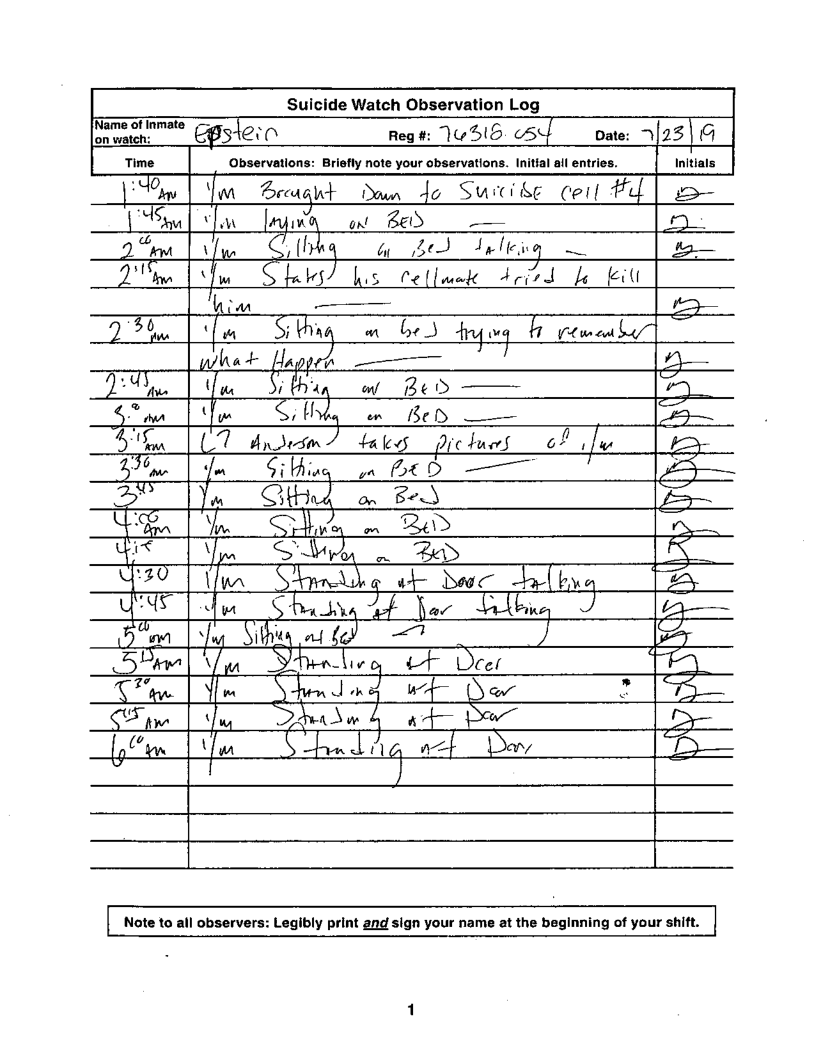 Suicide Watch Observation Log
Name of Inmate on watch: Epstein Reg #: 76318-054 Date: 7/23/19
Time Observations: Briefly note your observations. Initial all entries. Initials
1:40 AM I/m Brought Down to Suicide cell #4
1:45 AM I/m laying on BED
2:00 AM I/m Sitting on Bed talking
2:15 AM I/m States his cellmate tried to kill
him
2:30 AM I/m Sitting on bed trying to remember
what Happen
2:45 AM I/m Sitting on BED
3:00 AM I/m Sitting on BED
3:15 AM LT Anderson takes pictures of I/m
3:30 AM I/m Sitting on BED
3:45 I/m Sitting on Bed
4:00 AM I/m Sitting on BED
4:15 I/m Sitting on BED
4:30 I/m Standing at Door talking
4:45 I/m Standing at Door talking
5:00 am I/m Sitting on Bed
5:15 AM I/m Standing at Door
5:30 AM I/m Standing at Door
AM I/m Standing at Door
6:00 AM I/m Standing at Door
Note to all observers: Legibly print and sign your name at the beginning of your shift.
1